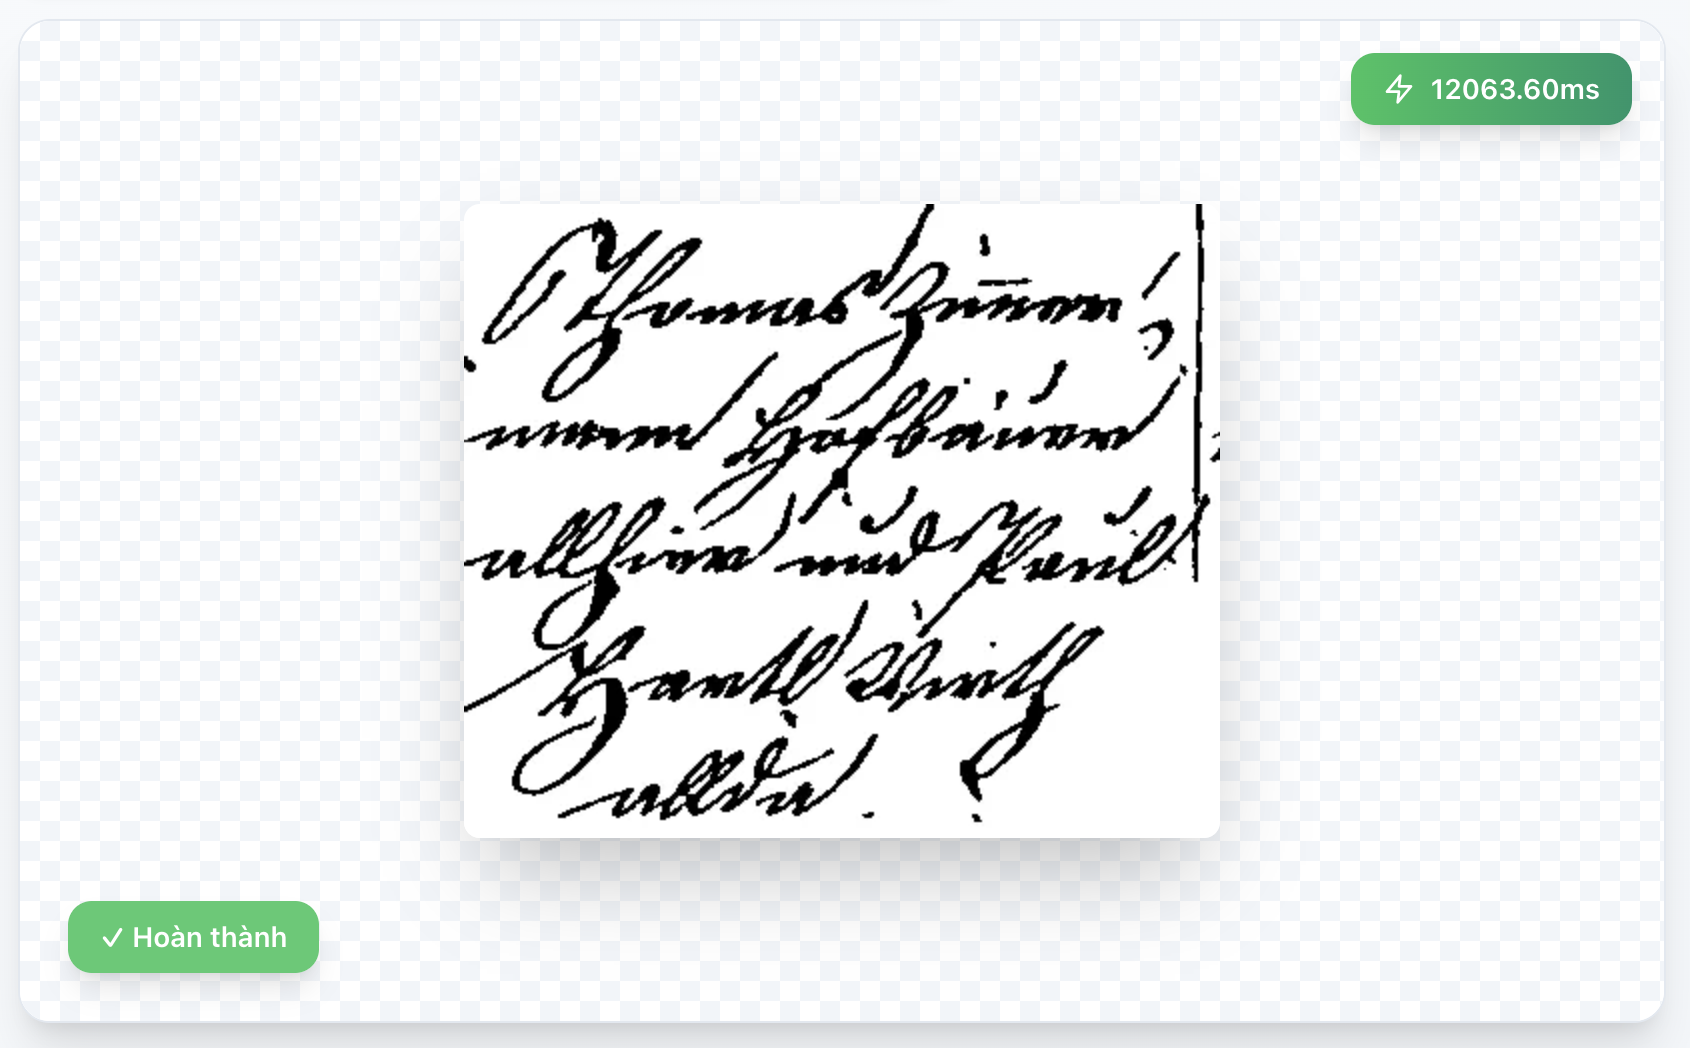 12063.60ms
Thomas Zim̅er
mann Hofbauer
allhier und Paul
Hartl Wirth
allda
✓ Hoàn thành